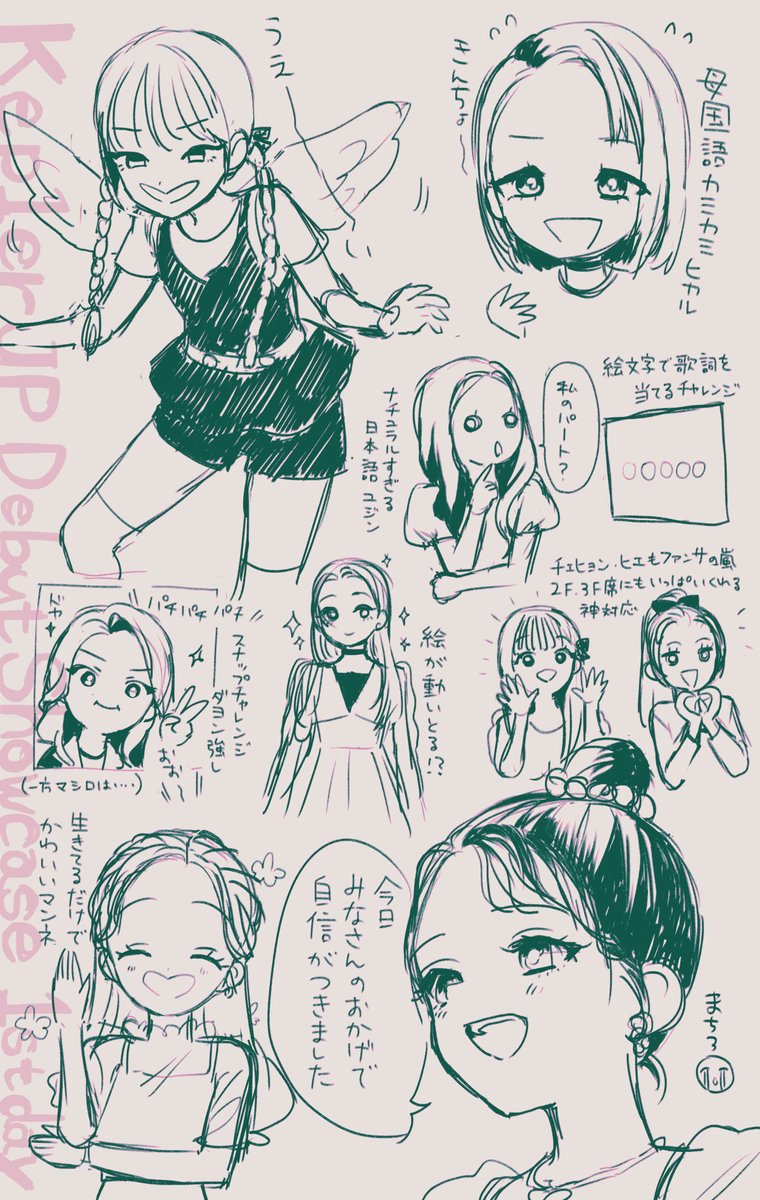 Kep1er JP Debut Showcase 1st day
うえーーい
きんちょ〜
母国語カミカミヒカル
絵文字で歌詞を
当てるチャレンジ
私のパート?
ナチュラルすぎる
日本語ユジン
チェヒョン、ヒエもファンサの嵐
2F.3F席にもいっぱいくれる
神対応
ドヤ
パチパチパチ
スナップチャレンジ
ダヨン強し
おお〜
(一方マシロは…)
絵が動いとる!?
生きてるだけで
かわいいマンネ
今日
みなさんのおかげで
自信がつきました
まちろ